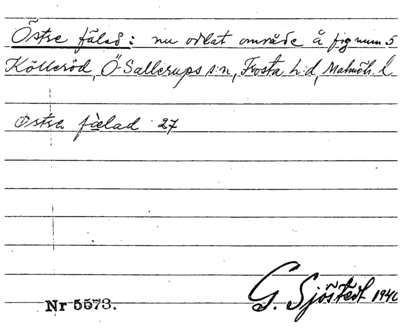 Östre fälad: nu odlat område å fig num 5
Kölleröd, Ö-Sallerups s:n, Frosta h:d, Malmöh. l.
östra fälad 27
G. Sjöstedt 1940
Nr 5573.